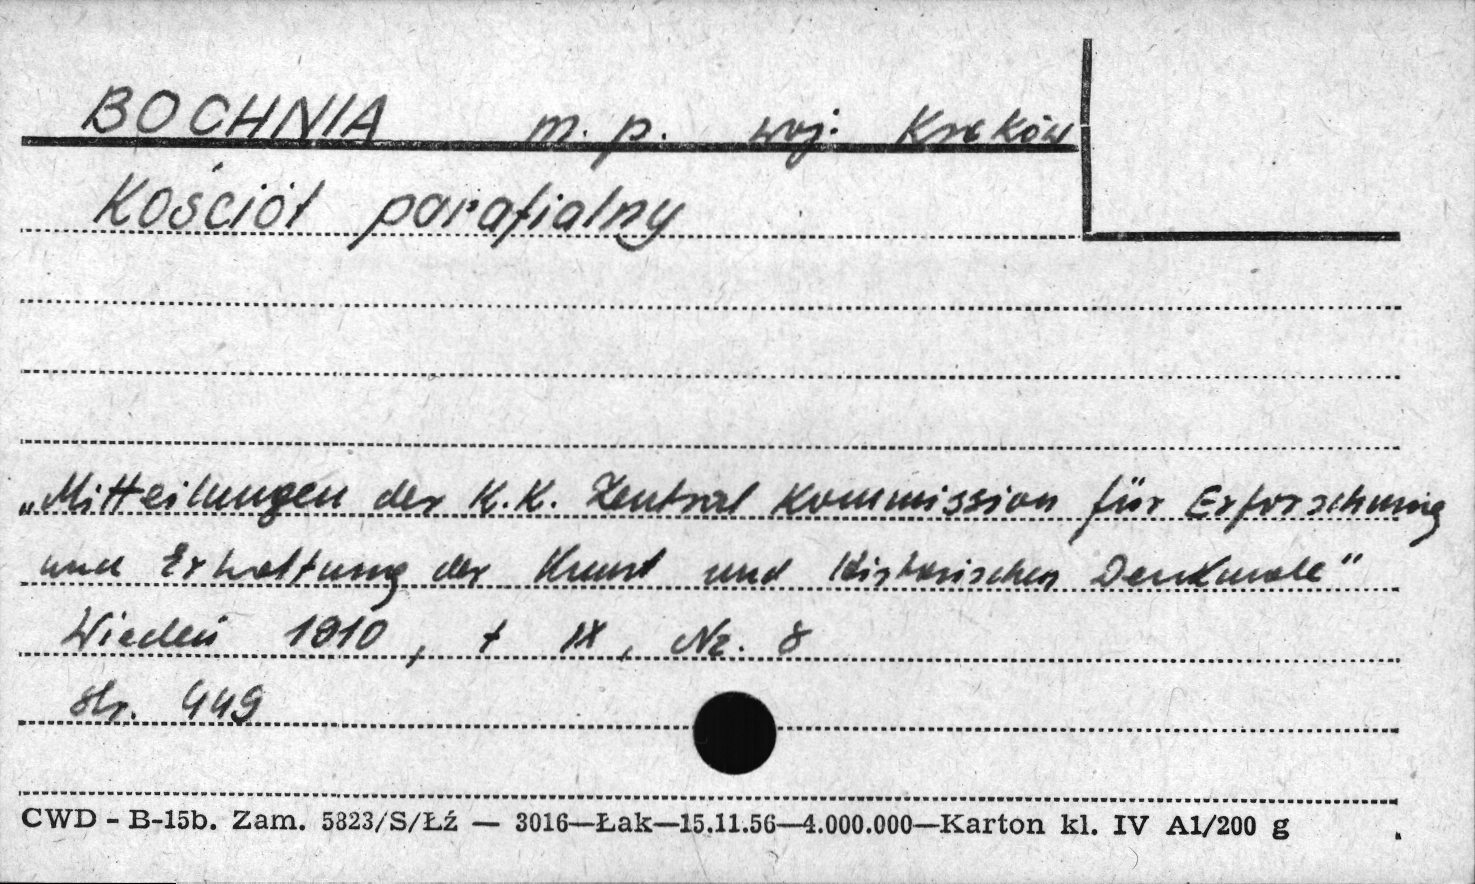 BOCHNIA m. p. woj. Kraków
Kościół parafialny
„Mitteilungen der K.K. Zentral Kommission für Erforschung
und Erhaltung der Kunst und Historischen Denkmale"
Wiedeń 1910, t IX, Nr. 8
str. 449
CWD - B-15b. Zam. 5823/S/Łź — 3016—Łak—15.11.56—4.000.000—Karton kl. IV A1/200 g